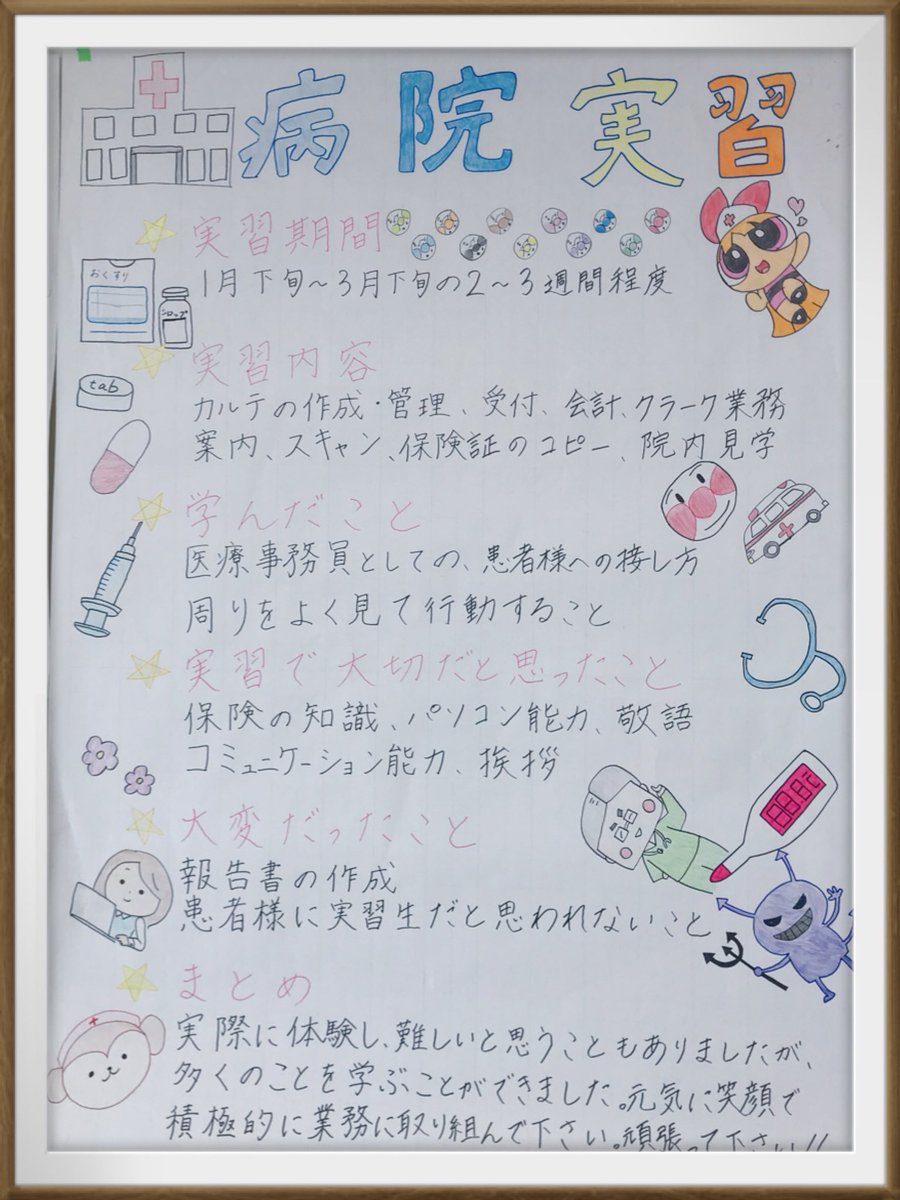 病院実習
実習期間
1月下旬～3月下旬の2～3週間程度
おくすり
シロップ
実習内容
tab
カルテの作成・管理、受付、会計、クラーク業務
案内、スキャン、保険証のコピー、院内見学
学んだこと
医療事務員としての、患者様への接し方
周りをよく見て行動すること
実習で大切だと思ったこと
保険の知識、パソコン能力、敬語
コミュニケーション能力、挨拶
大変だったこと
報告書の作成
患者様に実習生だと思われないこと
まとめ
実際に体験し、難しいと思うこともありましたが、
多くのことを学ぶことができました。元気に笑顔で
積極的に業務に取り組んで下さい。頑張って下さい!!